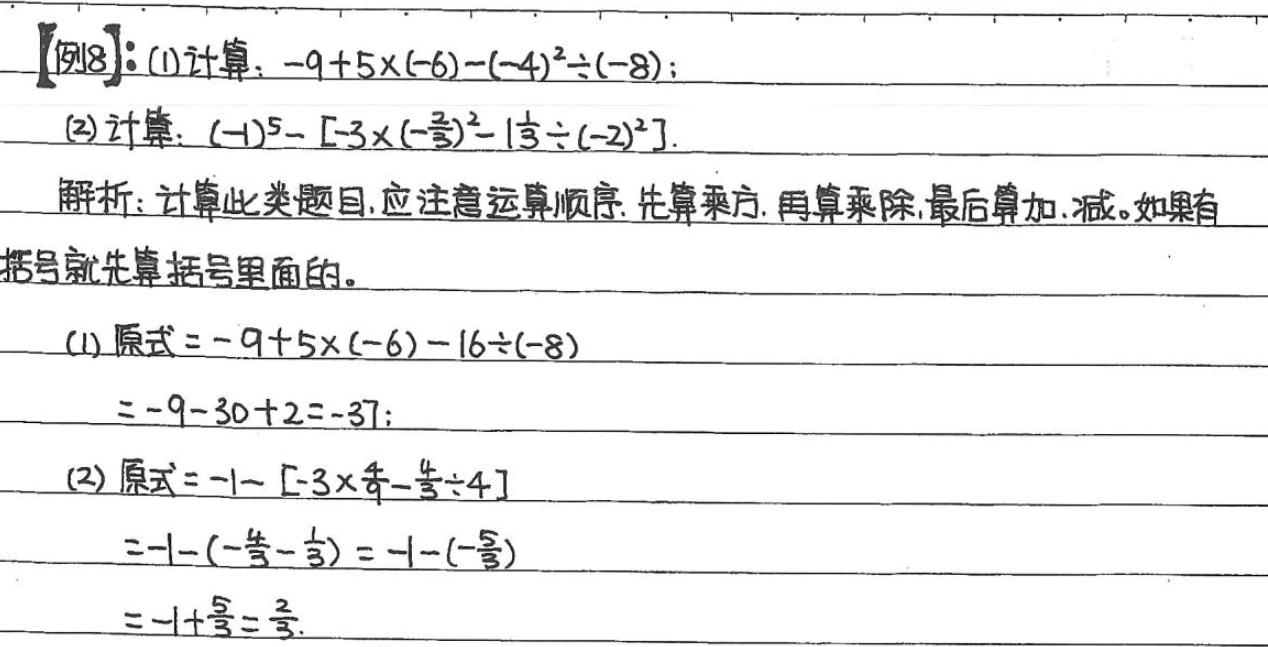 【例8】：(1)计算：-9+5×(-6)-(-4)²÷(-8)；
(2)计算：(-1)⁵-[-3×(-2/3)²-1 1/3÷(-2)²].
解析：计算此类题目，应注意运算顺序，先算乘方，再算乘除，最后算加、减。如果有
括号就先算括号里面的。
(1) 原式=-9+5×(-6)-16÷(-8)
=-9-30+2=-37；
(2) 原式=-1-[-3×4/9-4/3÷4]
=-1-(-4/3-1/3)=-1-(-5/3)
=-1+5/3=2/3.